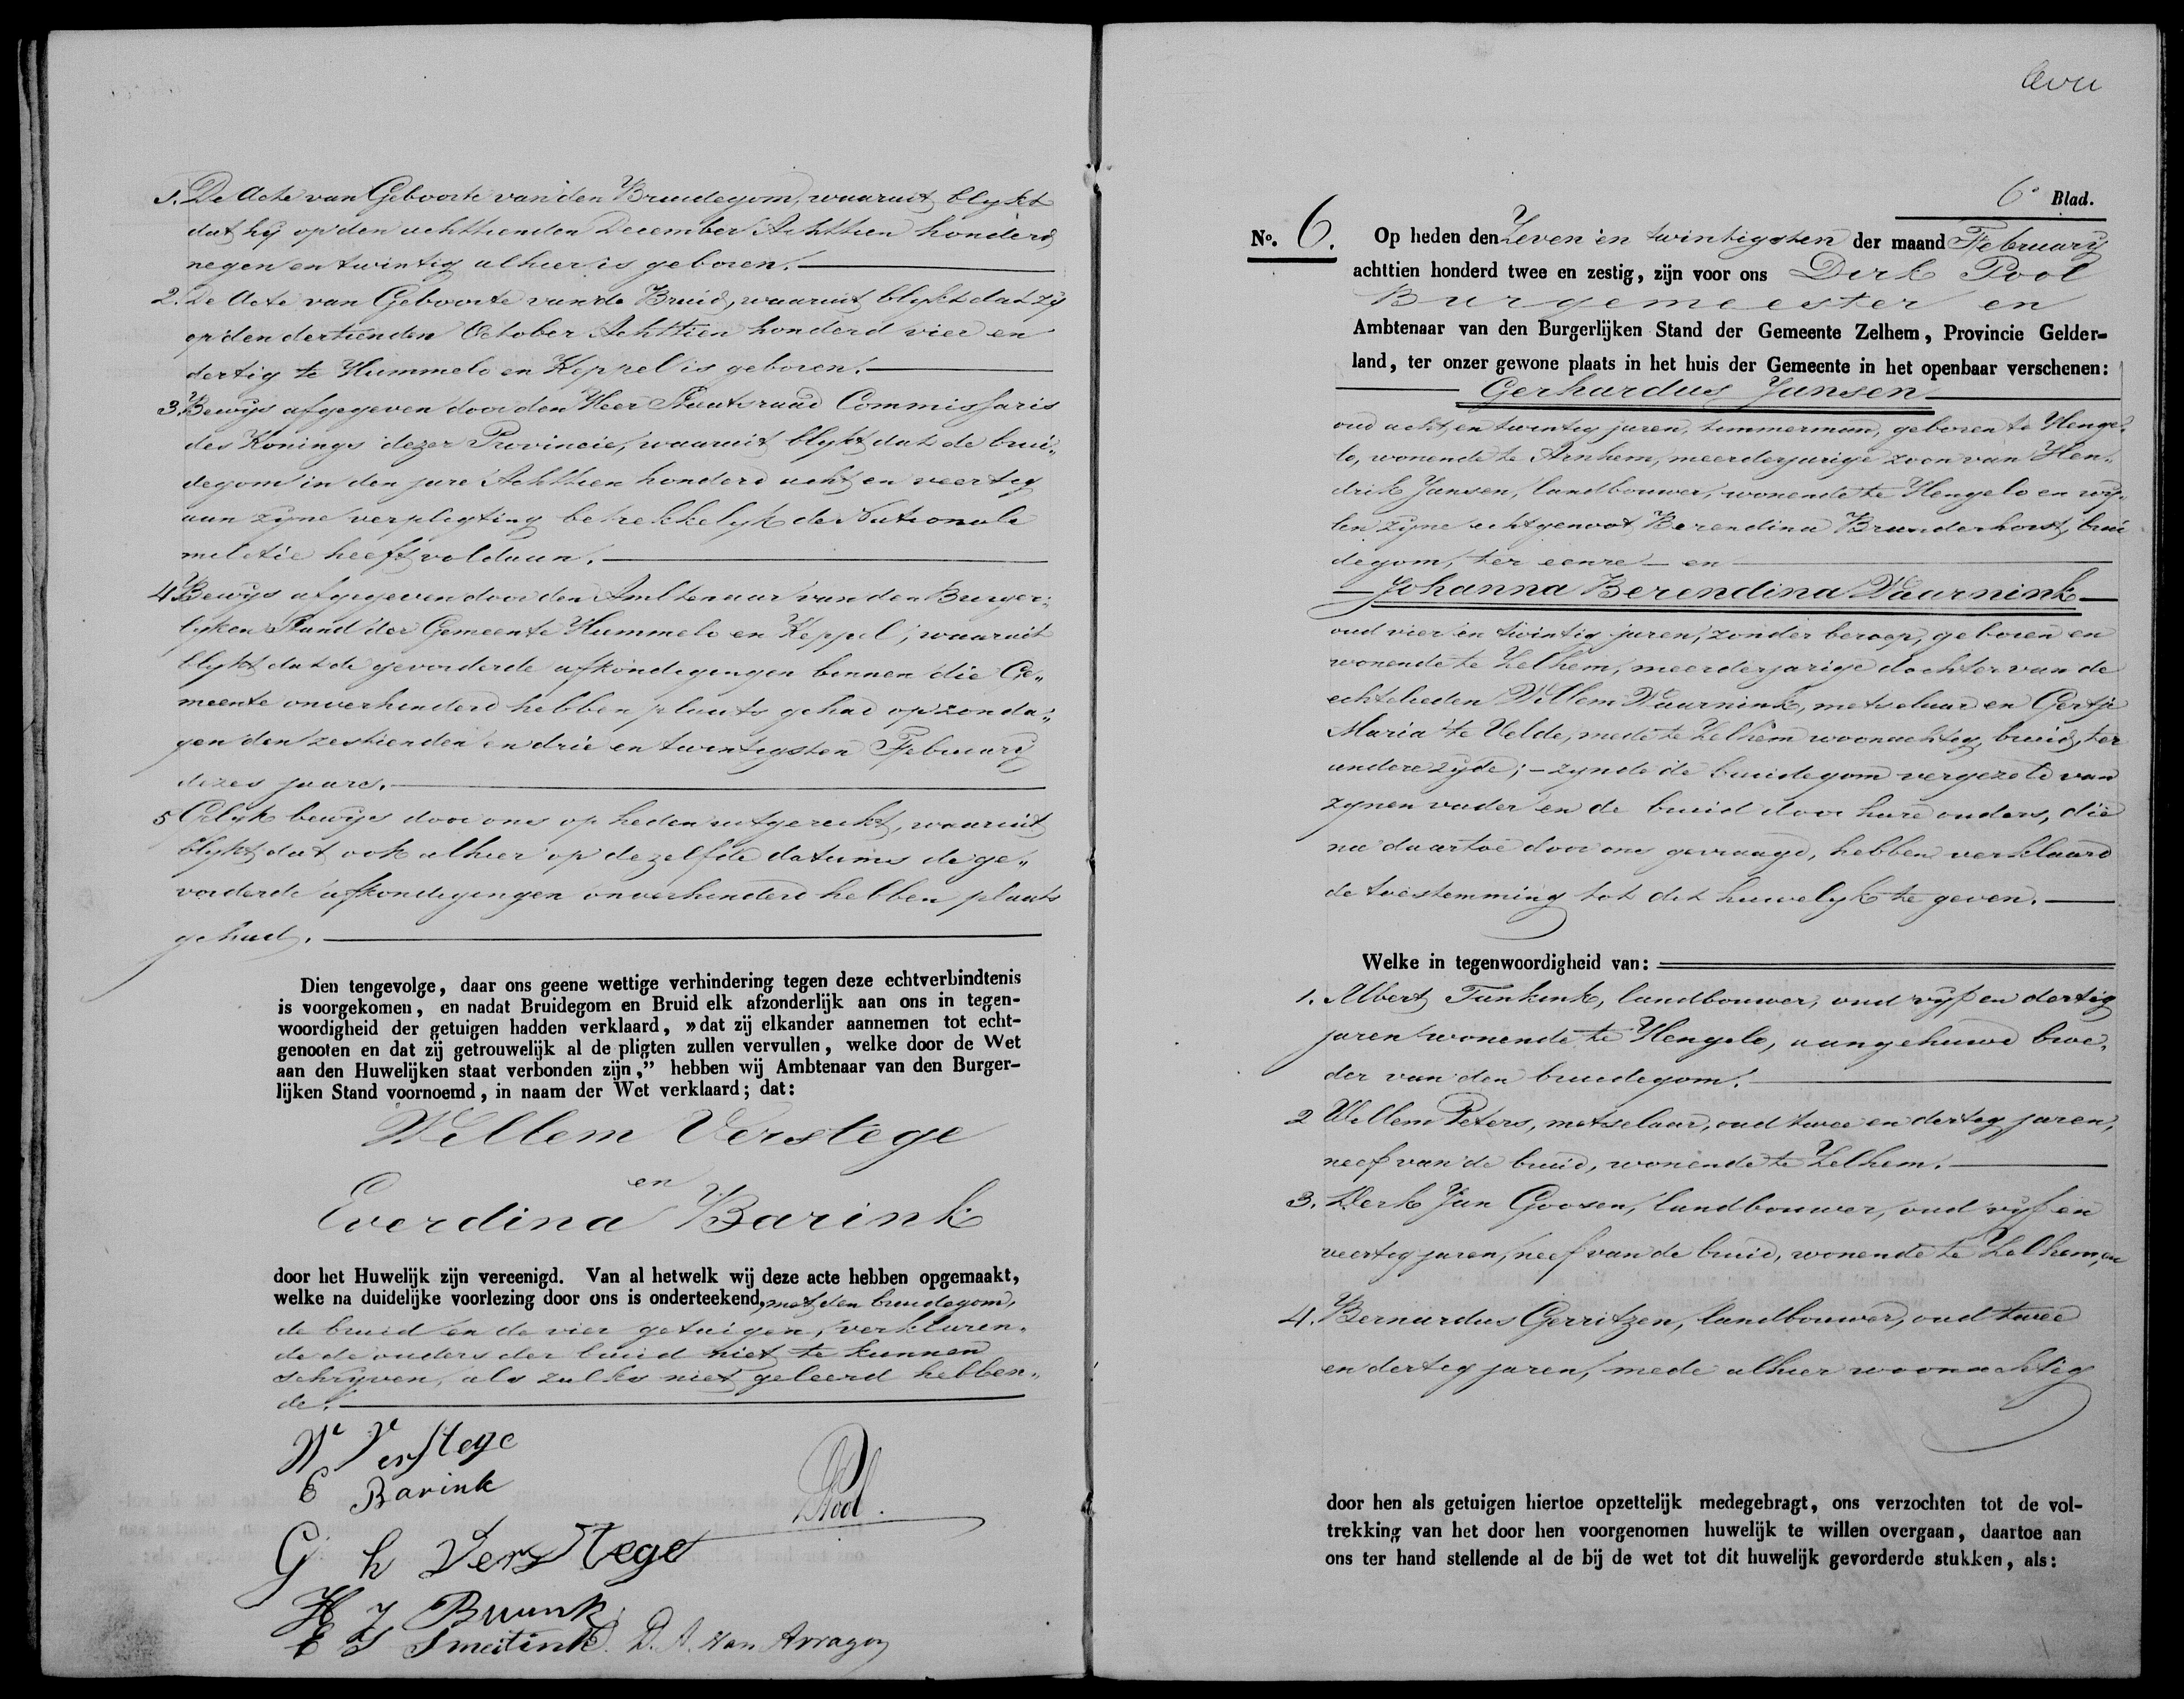 1. De Acte van Geboorte van den Bruidegom, waaruit blykt
dat hy op den achttienden December Achttien honderd
negen en twintig alhier is geboren.
2. De Acte van Geboorte van de Bruid, waaruit blykt dat zy
op den dertienden October Achttien honderd vier en
dertig te Hummelo en Keppel is geboren.
3. Bewys afgegeven door den Heer Staatsraad Commissaris
des Konings dezer Provincie, waaruit blykt dat de brui„
degom in den jare Achttien honderd acht en veertig
aan zyne verpligting betrekkelyk de Nationale
militie heeft voldaan.
4 Bewys afgegeven door den Ambtenaar van den Burger„
lyken Stand der Gemeente Hummelo en Keppel, waaruit
blykt dat de gevorderde afkondigingen binnen die Ge„
meente onverhinderd hebben plaats gehad op zonda„
gen den zestienden en drie en twintigsten February
dezes jaars.
5 Gelyk bewys door ons op heden uitgereikt, waaruit
blykt dat ook alhier op dezelfde datums de ge„
vorderde afkondigingen onverhinderd hebben plaats
gehad.
Dien tengevolge, daar ons geene wettige verhindering tegen deze echtverbindtenis
is voorgekomen, en nadat Bruidegom en Bruid elk afzonderlijk aan ons in tegen-
woordigheid der getuigen hadden verklaard, »dat zij elkander aannemen tot echt-
genooten en dat zij getrouwelijk al de pligten zullen vervullen, welke door de Wet
aan den Huwelijken staat verbonden zijn,” hebben wij Ambtenaar van den Burger-
lijken Stand voornoemd, in naam der Wet verklaard; dat:
Willem Verstege
en
Everdina Barink
door het Huwelijk zijn vereenigd. Van al hetwelk wij deze acte hebben opgemaakt,
welke na duidelijke voorlezing door ons is onderteekend, met den bruidegom,
de bruid en de vier getuigen, verklaren„
de de ouders der bruid niet te kunnen
schryven, als zulks niet geleerd hebben„
de.
W VerStege
E Barink
DPool.
G h VerStege
H J Buunk
E J Smeitink. D. A. van Arragon
6e Blad.
No. 6. Op heden den Zeven en twintigsten der maand February
achttien honderd twee en zestig, zijn voor ons Dirk Pool
Burgemeester en
Ambtenaar van den Burgerlijken Stand der Gemeente Zelhem, Provincie Gelder-
land, ter onzer gewone plaats in het huis der Gemeente in het openbaar verschenen:
Gerhardus Jansen
oud acht en twintig jaren, timmerman, geboren te Henge„
lo, wonende te Arnhem, meerderjarige zoon van Hen„
drik Jansen, landbouwer, wonende te Hengelo en wy„
len zyne echtgenoot Berendina Branderhorst, brui
degom, ter eenre en
Johanna Berendina Waarnink
oud vier en twintig jaren, zonder beroep, geboren en
wonende te Zelhem, meerderjarige dochter van de
echtelieden Willem Waarnink, metselaar en Gertje
Maria te Velde, mede te Zelhem woonachtig, bruid, ter
andere zyde; zynde de bruidegom vergezeld van
zynen vader en de bruid door hare ouders, die
na daartoe door ons gevraagd, hebben verklaard
de toestemming tot dit huwelyk te geven.
Welke in tegenwoordigheid van:
1. Albert Tankink, landbouwer, oud vyf en dertig
jaren wonende te Hengelo, aangehuwd broe„
der van den bruidegom.
2 Willem Peters, metselaar, oud twee en dertig jaren,
neef van de bruid, wonende te Zelhem.
3. Derk Jan Goosen, landbouwer, oud vyf en
veertig jaren, neef van de bruid, wonende te Zelhem, en
4. Bernardus Gerritzen, landbouwer, oud twee
en dertig jaren, mede alhier woonachtig
door hen als getuigen hiertoe opzettelijk medegebragt, ons verzochten tot de vol-
trekking van het door hen voorgenomen huwelijk te willen overgaan, daartoe aan
ons ter hand stellende al de bij de wet tot dit huwelijk gevorderde stukken, als: